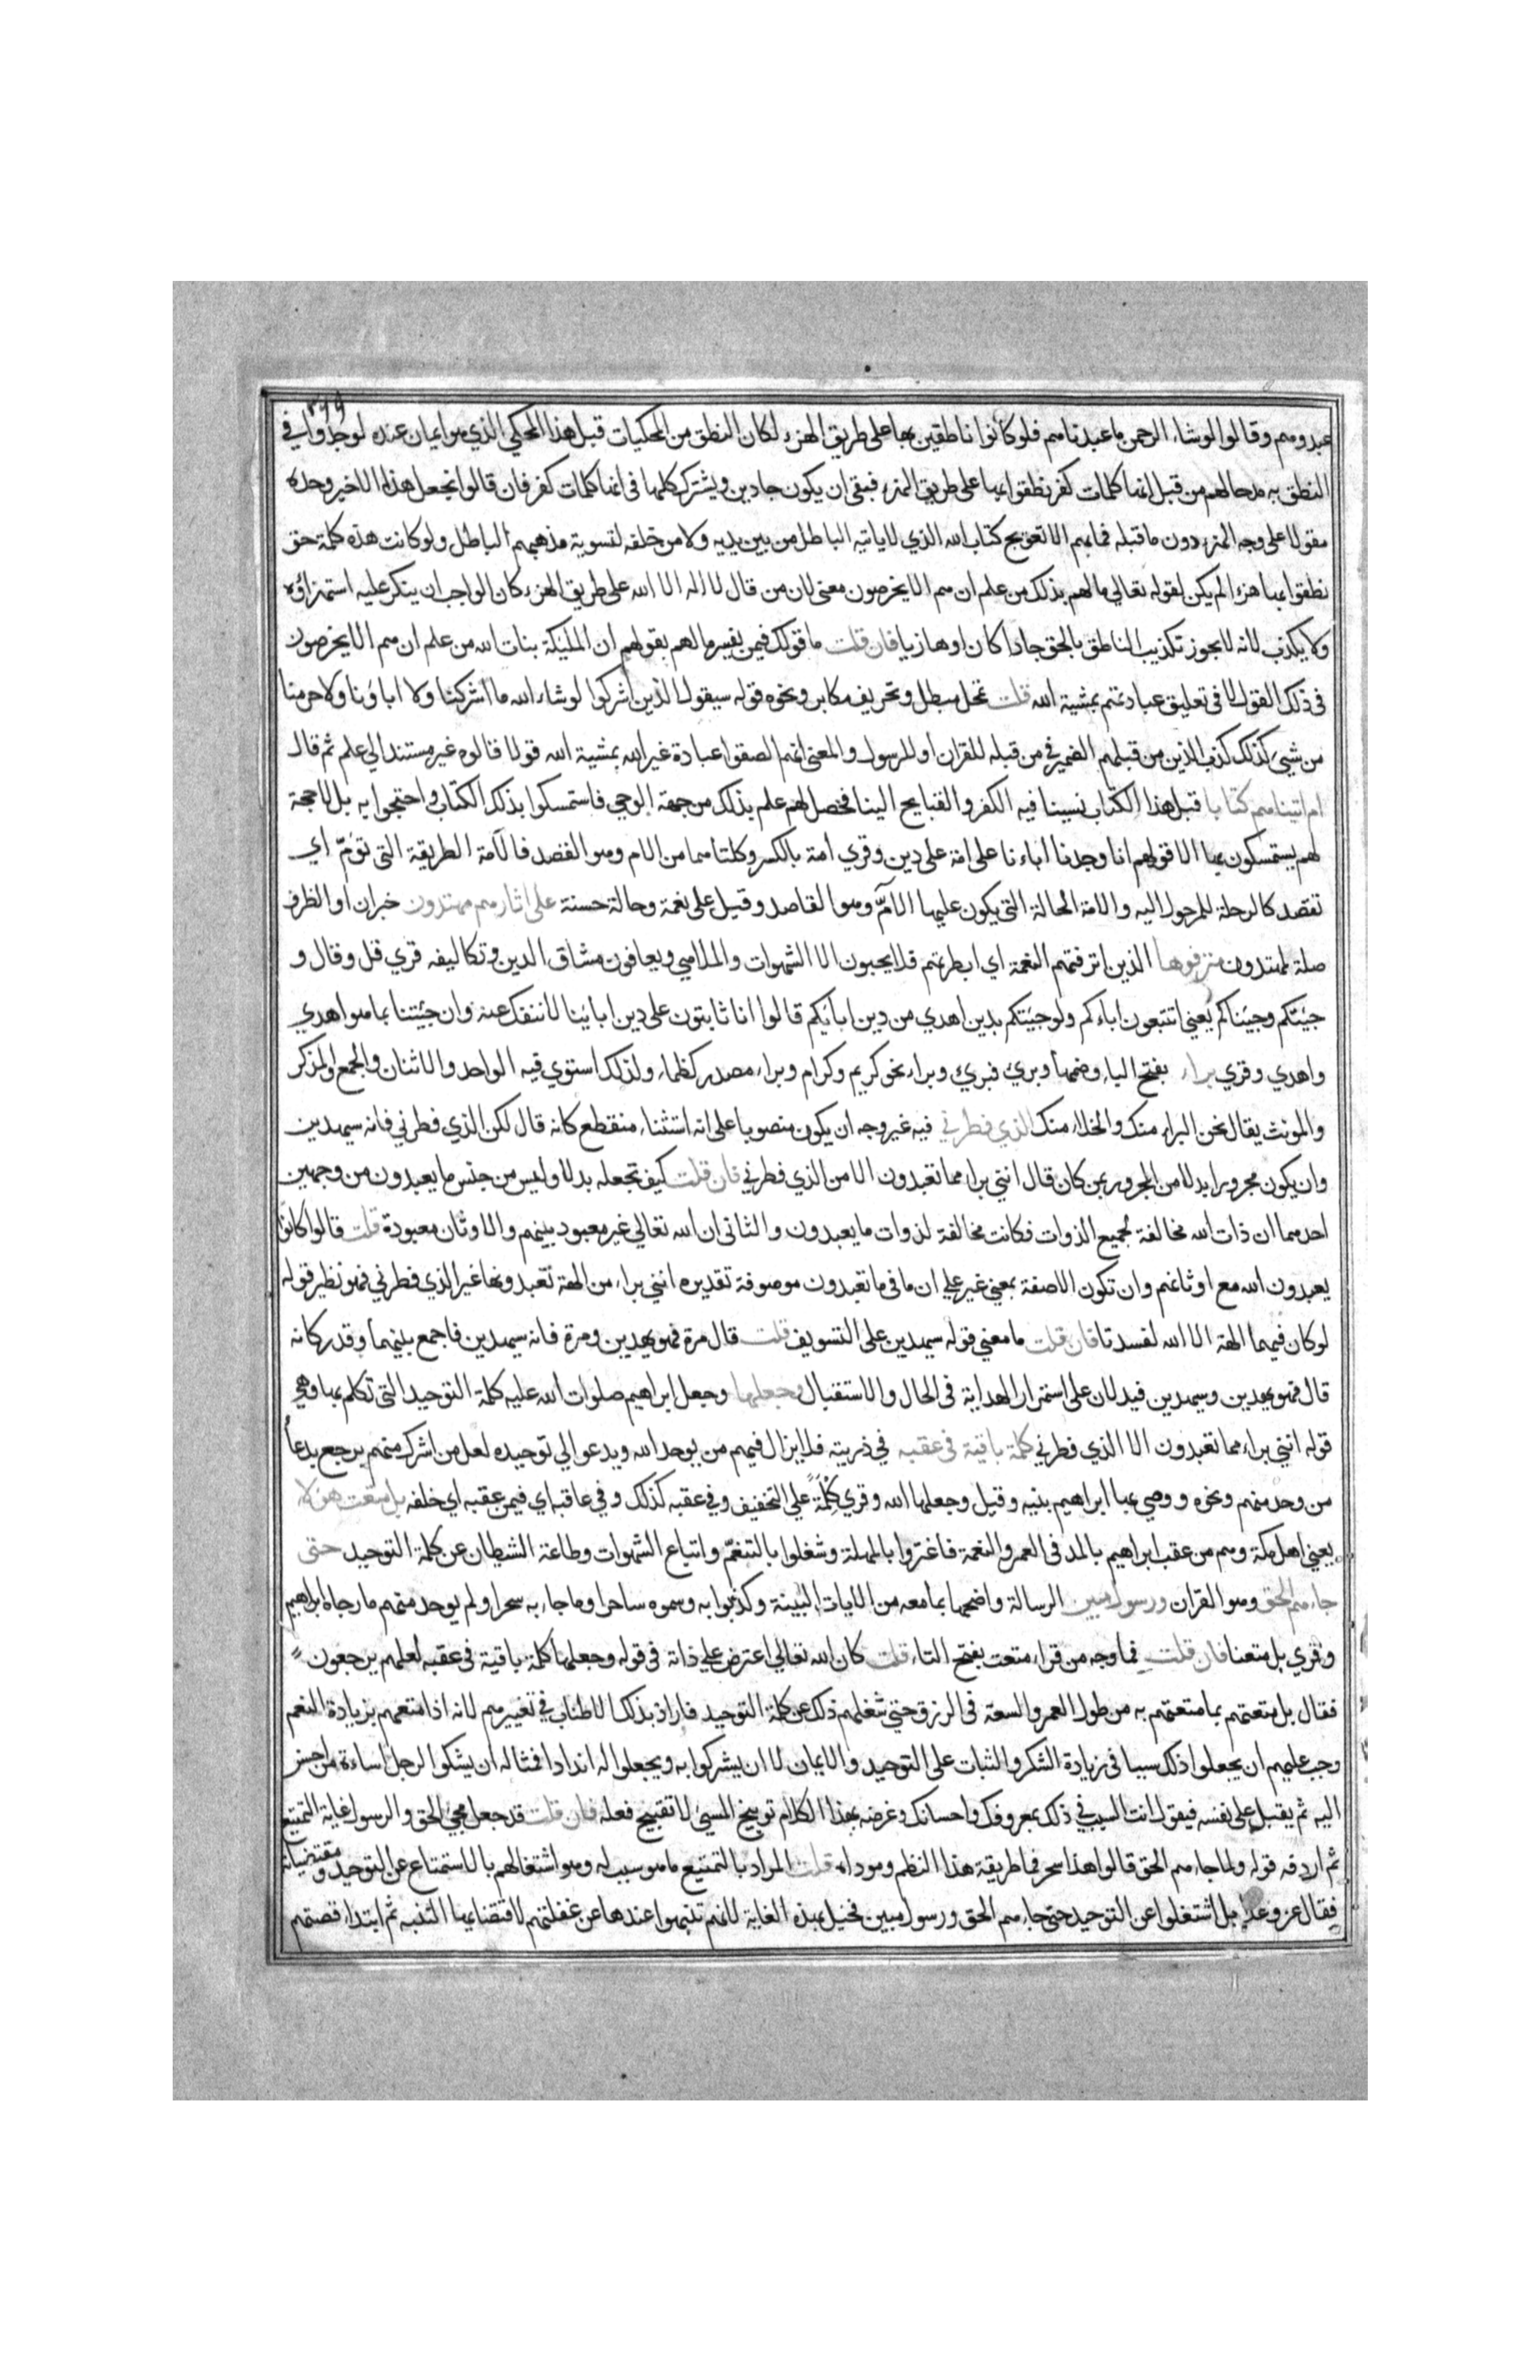 عبدوهم وقالوا لوشاء الرحمن ما عبدناهم فلو كانوا ناطقين بها على طريق الهزء لكان النطق من المحكيات قبل هذا المحكي الذي هو ايمان عنده لو جدوا في
النطق به مدحا لهم من قبل انها كلمات كفر نطقوا بها على طريق الهزء فبقي ان يكون جادين ويشترك كلها في انها كلمات كفر فان قالوا نجعل هذا الاخير وحده
مقولا على وجه الهزء دون ما قبله فما بهم الا تعويج كتاب الله الذي لا ياتيه الباطل من بين يديه ولا من خلفه لتسوية مذهبهم الباطل ولو كانت هذه كلمة حق
نطقوا بها هزءا لم يكن لقوله تعالي ما لهم بذلك من علم ان هم الا يخرصون معنى لان من قال لا اله الا الله على طريق الهزء كان الواجب ان ينكر عليه استهزاؤه
ولا يكذب لانه لا يجوز تكذيب الناطق بالحق جادا كان او هازيا فان قلت ما قولك فيمن يفسر ما لهم بقولهم ان المليكة بنات الله من علم ان هم الا يخرصون
في ذلك القول لا في تعليق عبادتهم بمشية الله قلت تمحل مبطل وتحريف مكابر ونحوه قوله سيقول الذين اشركوا لو شاء الله ما اشركنا ولا اباؤنا ولا حرمنا
من شيئ كذلك كذب الذين من قبلهم الضمير في من قبله للقران او للرسول والمعنى انهم الصقوا عبادة غير الله بمشية الله قولا قالوه غير مستند الي علم ثم قال
ام اتيناهم كتابا قبل هذا الكتاب نسبنا فيه الكفر والقبايح الينا فحصل لهم علم بذلك من جهة الوحي فاستمسكوا بذلك الكتاب واحتجوا به بل لا حجة
لهم يستمسكون بها الا قولهم انا وجدنا اباءنا على امة على دين وقري امة بالكسر وكلتاهما من الام وهو القصد فالامة الطريقة التى تؤمّ اي
تقصد كالرحلة للمرحول اليه والامة الحالة التى يكون عليها الآمّ وهو القاصد وقيل على نعمة وحالة حسنة على اثارهم مهتدون خبران او الظرف
صلة لمهتدون مترفوها الذين اترفتهم النعمة اي ابطرتهم فلا يحبون الا الشهوات والملاهي ويعافون مشاق الدين وتكاليفه قري قل وقال و
جيتكم وجيناكم يعني اتتبعون اباءكم ولو جيتكم بدين اهدي من دين ابايكم قالوا انا ثابتون على دين ابائنا لا ننفك عنه وان جيتنا بما هو اهدي
واهدي وقري براء بفتح الباء وضمها وبريء فبريء وبراء نحو كريم وكرام وبراء مصدر كظماء ولذلك استوي فيه الواحد والاثنان والجمع والمذكر
والمونث يقال نحن البراء منك والخلاء منك الذي فطرني فيه غير وجه ان يكون منصوبا على انه استثناء منقطع كانه قال لكن الذي فطرني فانه سيهدين
وان يكون مجرورا بدلا من المجرور بمن كان قال انني براء مما تعبدون الا من الذي فطرني فان قلت كيف تجعله بدلا وليس من جنس ما يعبدون من وجهين
احدهما ان ذات الله مخالفة لجميع الذوات فكانت مخالفة لذوات ما يعبدون والثانى ان الله تعالي غير معبود بينهم والاوثان معبودة قلت قالوا كانوا
يعبدون الله مع اوثانهم وان تكون الا صفة بمعني غير على ان ما في ما تعبدون موصوفة تقديره انني براء من الهة تعبدونها غير الذي فطرني فهو نظير قوله
لو كان فيهما الهة الا الله لفسدتا فان قلت ما معني قوله سيهدين على التسويف قلت قال مرة فهو يهدين ومرة فانه سيهدين فاجمع بينهما وقدر كانه
قال فهو يهدين وسيهدين فيدلان على استمرار الهداية في الحال والاستقبال وجعلها وجعل ابراهيم صلوات الله عليه كلمة التوحيد التى تكلم بها وهي
قوله انني براء مما تعبدون الا الذي فطرني كلمة باقية في عقبه في ذريته فلا يزال فيهم من يوحد الله ويدعو الي توحيده لعل من اشرك منهم يرجع بدعاء
من وحد منهم ونحوه ووصي بها ابراهيم بنيه وقيل وجعلها الله وقري كِلْمَةً على التخفيف وفي عقبه كذلك وفي عاقبه اي فيمن عقبه اي خلفه بل متعت هؤلا
يعني اهل مكة وهم من عقب ابراهيم بالمد في العمر والنعمة فاغتروا بالمهلة وشغلوا بالتنعّم واتباع الشهوات وطاعة الشيطان عن كلمة التوحيد حتى
جاءهم الحق وهو القران ورسول مبين الرسالة واضحها بما معه من الايات البينة وكذبوا به وسموه ساحرا وما جاء به سحرا ولم يوجد منهم ما رجاه ابراهيم
وقري بل متعنا فان قلت فما وجه من قراء متعت بفتح التاء قلت كان الله تعالي اعترض على ذاته في قوله وجعلها كلمة باقية في عقبه لعلهم يرجعون
فقال بل متعتهم بما متعتهم به من طول العمر والسعة في الرزق حتي شغلهم ذلك عن كلمة التوحيد فاراد بذلك الاطناب في تعييرهم لانه اذا متعهم بزيادة النعم
وجب عليهم ان يجعلوا ذلك سببا في زيادة الشكر والثبات على التوحيد والايمان لا ان يشركوا به ويجعلوا له اندادا فمثاله ان يشكو الرجل اساءة من احسن
اليه ثم يقبل على نفسه فيقول انت السبب في ذلك بمعروفك واحسانك وغرضه بهذا الكلام توبيخ المسيئ لا تقبيح فعله فان قلت قد جعل مجيئ الحق والرسول غاية التمتيع
ثم اردفه قوله ولما جاءهم الحق قالوا هذا سحر فما طريقة هذا النظم ومؤداه قلت المراد بالتمتيع ما هو سبب له وهو اشتغالهم بالاستمتاع عن التوحيد ومقتضياته
فقال عز وعلا بل اشتغلوا عن التوحيد حتى جاءهم الحق ورسول مبين فخيل بهذه الغاية لانهم تنبهوا عندها عن غفلتهم لاقتضائها التنبه ثم ابتداء قصتهم